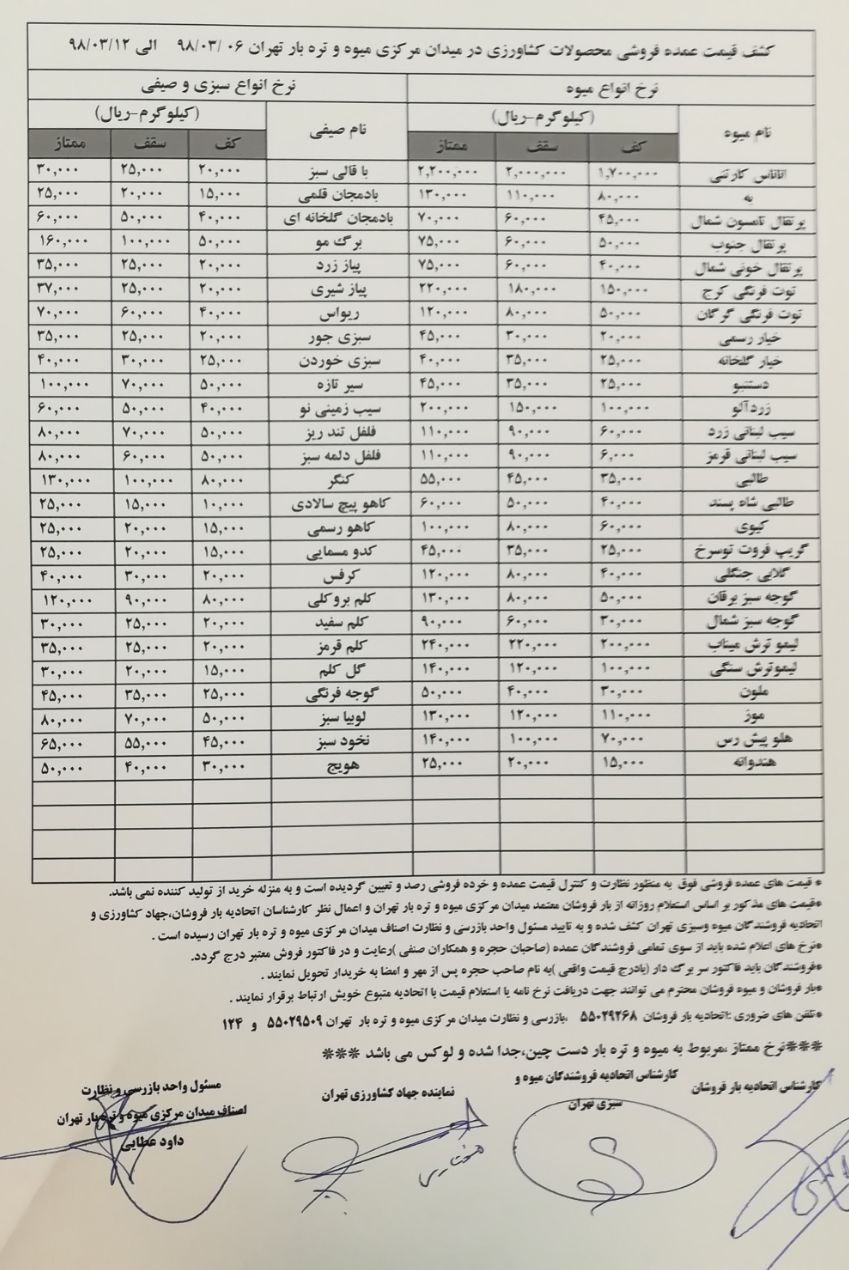 کشف قیمت عمده فروشی محصولات کشاورزی در میدان مرکزی میوه و تره بار تهران ۰۶ /۹۸/۰۳ الی ۹۸/۰۳/۱۲
نرخ انواع میوه نرخ انواع سبزی و صیفی
نام میوه (کیلوگرم-ریال) نام صیفی (کیلوگرم-ریال)
کف سقف ممتاز کف سقف ممتاز
اناناس کارتنی ۱,۷۰۰,۰۰۰ ۲,۰۰۰,۰۰۰ ۲,۲۰۰,۰۰۰ با قالی سبز ۲۰,۰۰۰ ۲۵,۰۰۰ ۳۰,۰۰۰
به ۸۰,۰۰۰ ۱۱۰,۰۰۰ ۱۳۰,۰۰۰ بادمجان قلمی ۱۵,۰۰۰ ۲۰,۰۰۰ ۲۵,۰۰۰
پرتقال تامسون شمال ۴۵,۰۰۰ ۶۰,۰۰۰ ۷۰,۰۰۰ بادمجان گلخانه ای ۴۰,۰۰۰ ۵۰,۰۰۰ ۶۰,۰۰۰
پرتقال جنوب ۵۰,۰۰۰ ۶۰,۰۰۰ ۷۵,۰۰۰ برگ مو ۵۰,۰۰۰ ۱۰۰,۰۰۰ ۱۶۰,۰۰۰
پرتقال خونی شمال ۴۰,۰۰۰ ۶۰,۰۰۰ ۷۵,۰۰۰ پیاز زرد ۲۰,۰۰۰ ۲۵,۰۰۰ ۳۵,۰۰۰
توت فرنگی کرج ۱۵۰,۰۰۰ ۱۸۰,۰۰۰ ۲۲۰,۰۰۰ پیاز شیری ۲۰,۰۰۰ ۲۵,۰۰۰ ۳۷,۰۰۰
توت فرنگی گرگان ۵۰,۰۰۰ ۸۰,۰۰۰ ۱۲۰,۰۰۰ ریواس ۴۰,۰۰۰ ۶۰,۰۰۰ ۷۰,۰۰۰
خیار رسمی ۲۰,۰۰۰ ۳۰,۰۰۰ ۴۵,۰۰۰ سبزی جور ۲۰,۰۰۰ ۲۵,۰۰۰ ۳۵,۰۰۰
خیار گلخانه ۲۵,۰۰۰ ۳۵,۰۰۰ ۴۰,۰۰۰ سبزی خوردن ۲۵,۰۰۰ ۳۰,۰۰۰ ۴۰,۰۰۰
دستنبو ۲۵,۰۰۰ ۳۵,۰۰۰ ۴۵,۰۰۰ سیر تازه ۵۰,۰۰۰ ۷۰,۰۰۰ ۱۰۰,۰۰۰
زردآلو ۱۰۰,۰۰۰ ۱۵۰,۰۰۰ ۲۰۰,۰۰۰ سیب زمینی نو ۴۰,۰۰۰ ۵۰,۰۰۰ ۶۰,۰۰۰
سیب لبنانی زرد ۶۰,۰۰۰ ۹۰,۰۰۰ ۱۱۰,۰۰۰ فلفل تند ریز ۵۰,۰۰۰ ۷۰,۰۰۰ ۸۰,۰۰۰
سیب لبنانی قرمز ۶,۰۰۰ ۹۰,۰۰۰ ۱۱۰,۰۰۰ فلفل دلمه سبز ۵۰,۰۰۰ ۶۰,۰۰۰ ۸۰,۰۰۰
طالبی ۳۵,۰۰۰ ۴۵,۰۰۰ ۵۵,۰۰۰ کنگر ۸۰,۰۰۰ ۱۰۰,۰۰۰ ۱۳۰,۰۰۰
طالبی شاه پسند ۴۰,۰۰۰ ۵۰,۰۰۰ ۶۰,۰۰۰ کاهو پیچ سالادی ۱۰,۰۰۰ ۱۵,۰۰۰ ۲۵,۰۰۰
کیوی ۶۰,۰۰۰ ۸۰,۰۰۰ ۱۰۰,۰۰۰ کاهو رسمی ۱۵,۰۰۰ ۲۰,۰۰۰ ۲۵,۰۰۰
گریپ فروت توسرخ ۲۵,۰۰۰ ۳۵,۰۰۰ ۴۵,۰۰۰ کدو مسمایی ۱۵,۰۰۰ ۲۰,۰۰۰ ۲۵,۰۰۰
گلابی جنگلی ۴۰,۰۰۰ ۸۰,۰۰۰ ۱۲۰,۰۰۰ کرفس ۲۰,۰۰۰ ۳۰,۰۰۰ ۴۰,۰۰۰
گوجه سبز برقان ۵۰,۰۰۰ ۸۰,۰۰۰ ۱۳۰,۰۰۰ کلم بروکلی ۸۰,۰۰۰ ۹۰,۰۰۰ ۱۲۰,۰۰۰
گوجه سبز شمال ۳۰,۰۰۰ ۶۰,۰۰۰ ۹۰,۰۰۰ کلم سفید ۲۰,۰۰۰ ۲۵,۰۰۰ ۳۰,۰۰۰
لیمو ترش میناب ۲۰۰,۰۰۰ ۲۲۰,۰۰۰ ۲۴۰,۰۰۰ کلم قرمز ۲۰,۰۰۰ ۲۵,۰۰۰ ۳۵,۰۰۰
لیموترش سنگی ۱۰۰,۰۰۰ ۱۲۰,۰۰۰ ۱۴۰,۰۰۰ گل کلم ۱۵,۰۰۰ ۲۰,۰۰۰ ۳۰,۰۰۰
ملون ۳۰,۰۰۰ ۴۰,۰۰۰ ۵۰,۰۰۰ گوجه فرنگی ۲۵,۰۰۰ ۳۵,۰۰۰ ۴۵,۰۰۰
موز ۱۱۰,۰۰۰ ۱۲۰,۰۰۰ ۱۳۰,۰۰۰ لوبیا سبز ۵۰,۰۰۰ ۷۰,۰۰۰ ۸۰,۰۰۰
هلو پیش رس ۷۰,۰۰۰ ۱۰۰,۰۰۰ ۱۴۰,۰۰۰ نخود سبز ۴۵,۰۰۰ ۵۵,۰۰۰ ۶۵,۰۰۰
هندوانه ۱۵,۰۰۰ ۲۰,۰۰۰ ۲۵,۰۰۰ هویج ۳۰,۰۰۰ ۴۰,۰۰۰ ۵۰,۰۰۰
* قیمت های عمده فروشی فوق به منظور نظارت و کنترل قیمت عمده و خرده فروشی رصد و تعیین گردیده است و به منزله خرید از تولید کننده نمی باشد.
*قیمت های مذکور بر اساس استعلام روزانه از بار فروشان معتمد میدان مرکزی میوه و تره بار تهران و اعمال نظر کارشناسان اتحادیه بار فروشان،جهاد کشاورزی و
اتحادیه فروشندگان میوه وسبزی تهران کشف شده و به تایید مسئول واحد بازرسی و نظارت اصناف میدان مرکزی میوه و تره بار تهران رسیده است .
*نرخ های اعلام شده باید از سوی تمامی فروشندگان عمده (صاحبان حجره و همکاران صنفی )رعایت و در فاکتور فروش معتبر درج گردد.
*فروشندگان باید فاکتور سر برگ دار (بادرج قیمت واقعی )به نام صاحب حجره پس از مهر و امضا به خریدار تحویل نمایند .
*بار فروشان و میوه فروشان محترم می توانند جهت دریافت نرخ نامه یا استعلام قیمت با اتحادیه متبوع خویش ارتباط برقرار نمایند .
*تلفن های ضروری :اتحادیه بار فروشان ۵۵۰۲۹۲۶۸ ،بازرسی و نظارت میدان مرکزی میوه و تره بار تهران ۵۵۰۲۹۵۰۹ و ۱۲۴
***نرخ ممتاز ،مربوط به میوه و تره بار دست چین،جدا شده و لوکس می باشد ***
کارشناس اتحادیه بار فروشان
کارشناس اتحادیه فروشندگان میوه و
سبزی تهران
نماینده جهاد کشاورزی تهران
مسئول واحد بازرسی و نظارت
اصناف میدان مرکزی میوه و تره بار تهران
داود عطایی